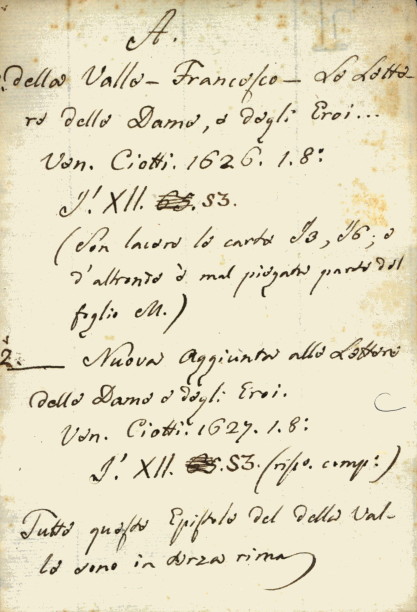 A.
della Valle - Francesco - Le Lette-
re delle Dame, e degli Eroi...
Ven. Ciotti. 1626. 1. 8:
J! XII. S3.
(Son lacere le carte I3, I6; e
d'altronde è mal piegata parte del
foglio M.)
2. Nuova Aggiunta alle Lettere
delle Dame e degli Eroi.
Ven. Ciotti. 1627. 1. 8:
J! XII. S3. (rispo. comp:)
Tutte queste Epistole del della Val-
le sono in terza rima